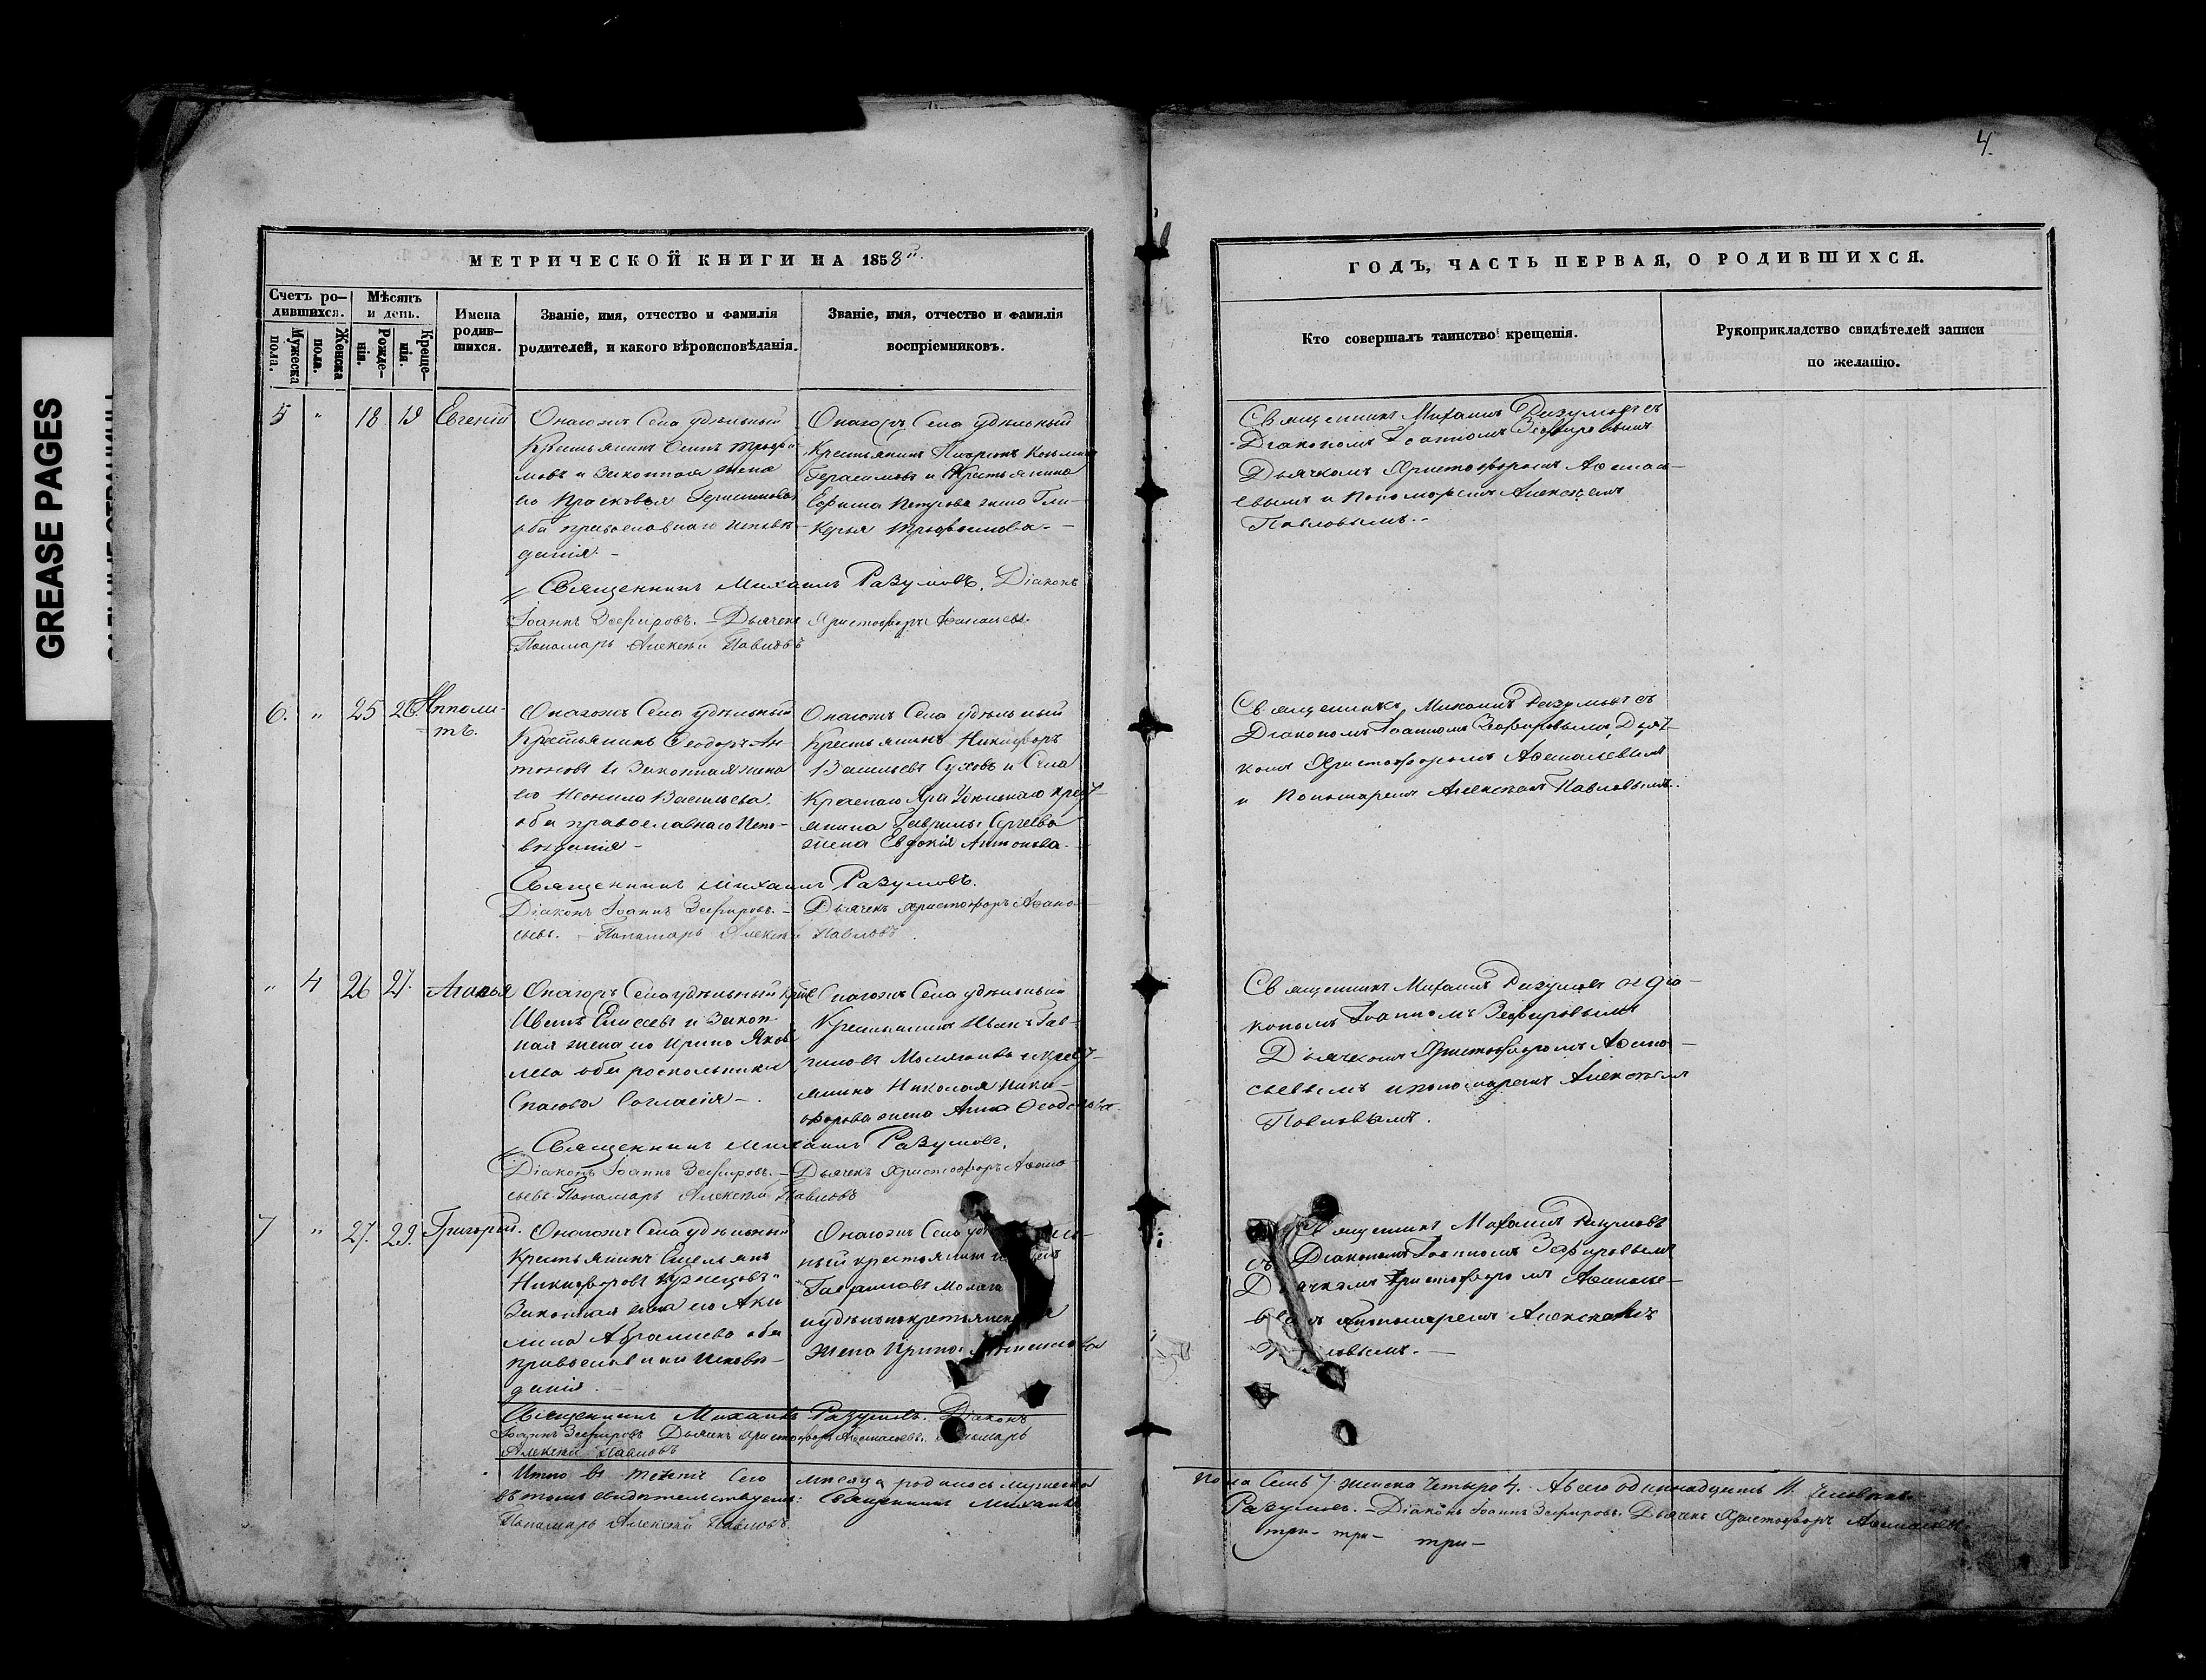 GREASE PAGES
4.
МЕТРИЧЕСКОЙ КНИГИ НА 1858й
ГОДЪ, ЧАСТЬ ПЕРВАЯ, О РОДИВШИХСЯ.
Счетъ ро-
дившихся.
Мужеска
пола.
Женска
пола.
Мѣсяцъ
и день.
Рожде-
нія.
Креще-
нія.
Имена
родив-
шихся.
Званіе, имя, отчество и фамилія
родителей, и какого вѣроисповѣданія.
Званіе, имя, отчество и фамилія
воспріемниковъ.
Кто совершалъ таинство крещенія.
Рукоприкладство свидѣтелей записи
по желанію.
5 " 18 19 Евгеній
Села удѣльный
Крестьянинъ
и Законная жена
его Прасковья Герасимова
оба православнаго исповѣ-
данія. -
Села удѣльный
Крестьянинъ
Герасимовъ и Крестьянина
Ефима Петрова жена Гли-
керья Трофимова. -
Священникъ Михаилъ Разумовъ съ
Діакономъ Іоанномъ Зефировымъ
Дьячкомъ Христофоромъ Афанась-
евымъ и Пономаремъ Алексѣемъ
Павловымъ. -
Священникъ Михаилъ Разумовъ. Діаконъ
Іоаннъ Зефировъ. - Дьячекъ Христофоръ Афанасьевъ.
Пономарь Алексѣй Павловъ
6. " 25 26. Ипполи-
тъ.
Села удѣльный
Крестьянинъ Ѳеодоръ Ан-
тоновъ и Законная жена
его Неонила Васильева.
оба православнаго Испо-
вѣданія -
Села удѣльный
Крестьянинъ Никифоръ
Васильевъ Суховъ и Села
Удѣльнаго крест-
янина Гаврилы Сергѣева
жена Евдокія Антонова. -
Священникъ Михаилъ Разумовъ съ
Діакономъ Іоанномъ Зефировымъ, Дьяч-
комъ Христофоромъ Афанасьевымъ
и Пономаремъ Алексѣемъ Павловымъ.
Священникъ Михаилъ Разумовъ.
Діаконъ Іоаннъ Зефировъ. - Дьячекъ Христофоръ Афана-
сьевъ. - Пономарь Алексѣй Павловъ
" 4 26 27. Агафья
Села удѣльный крест.
Иванъ Елисеевъ и Закон-
ная жена его Ирина Яков-
лева оба роскольники
Спасова Согласія -.
Села удѣльный
Крестьянинъ Иванъ Гав-
риловъ и крест-
янина Николая Ники-
форова жена Анна Ѳеодорова.
Священникъ Михаилъ Разумовъ съ діа-
кономъ Іоанномъ Зефировымъ
Дьячкомъ Христофоромъ Афана-
сьевымъ и пономаремъ Алексѣемъ
Павловымъ.
Священникъ Михаилъ Разумовъ.
Діаконъ Іоаннъ Зефировъ. - Дьячекъ Христофоръ Афана-
сьевъ Пономарь Алексѣй Павловъ
7 " 27. 29. Григорій.
Села удѣльный
Крестьянинъ Емельянъ
Никифоровъ Кузнецовъ и
Законная жена его Аки-
лина Абрамова оба
православнаго исповѣ-
данія. -
Села
ный крестьянинъ
жена Ирина
Священникъ Михаилъ Разумовъ
съ Діакономъ Іоанномъ Зефировымъ
Дьячкомъ Христофоромъ Афанасье-
вымъ и Пономаремъ Алексѣемъ
Павловымъ. -
Священникъ Михаилъ Разумовъ. Діаконъ
Іоаннъ Зефировъ Дьячекъ Христофоръ Афанасьевъ. Пономарь
Алексѣй Павловъ
Итого въ теченіи сего мѣсяца родилось мужеска пола Семь 7. женска четыре 4. А всего одиннадцать 11. человѣкъ.
въ томъ свидѣтельствуемъ: Священникъ Михаилъ Разумовъ. - Діаконъ Іоаннъ Зефировъ. Дьячекъ Христофоръ Афанасьевъ.
Пономарь Алексѣй Павловъ.
три - три - три -